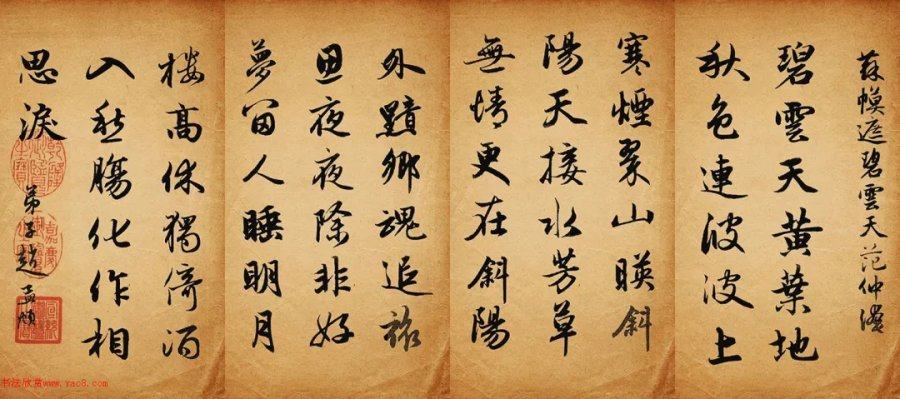 蘇幙遮碧雲天范仲淹
碧雲天黄葉地
秋色連波波上
寒煙翠山暎斜
陽天接水芳草
無情更在斜陽
外黯鄉魂追旅
思夜夜除非好
夢留人睡明月
楼高休獨倚酒
入愁腸化作相
思淚
弟子趙孟頫
书法欣赏www.yac8.com